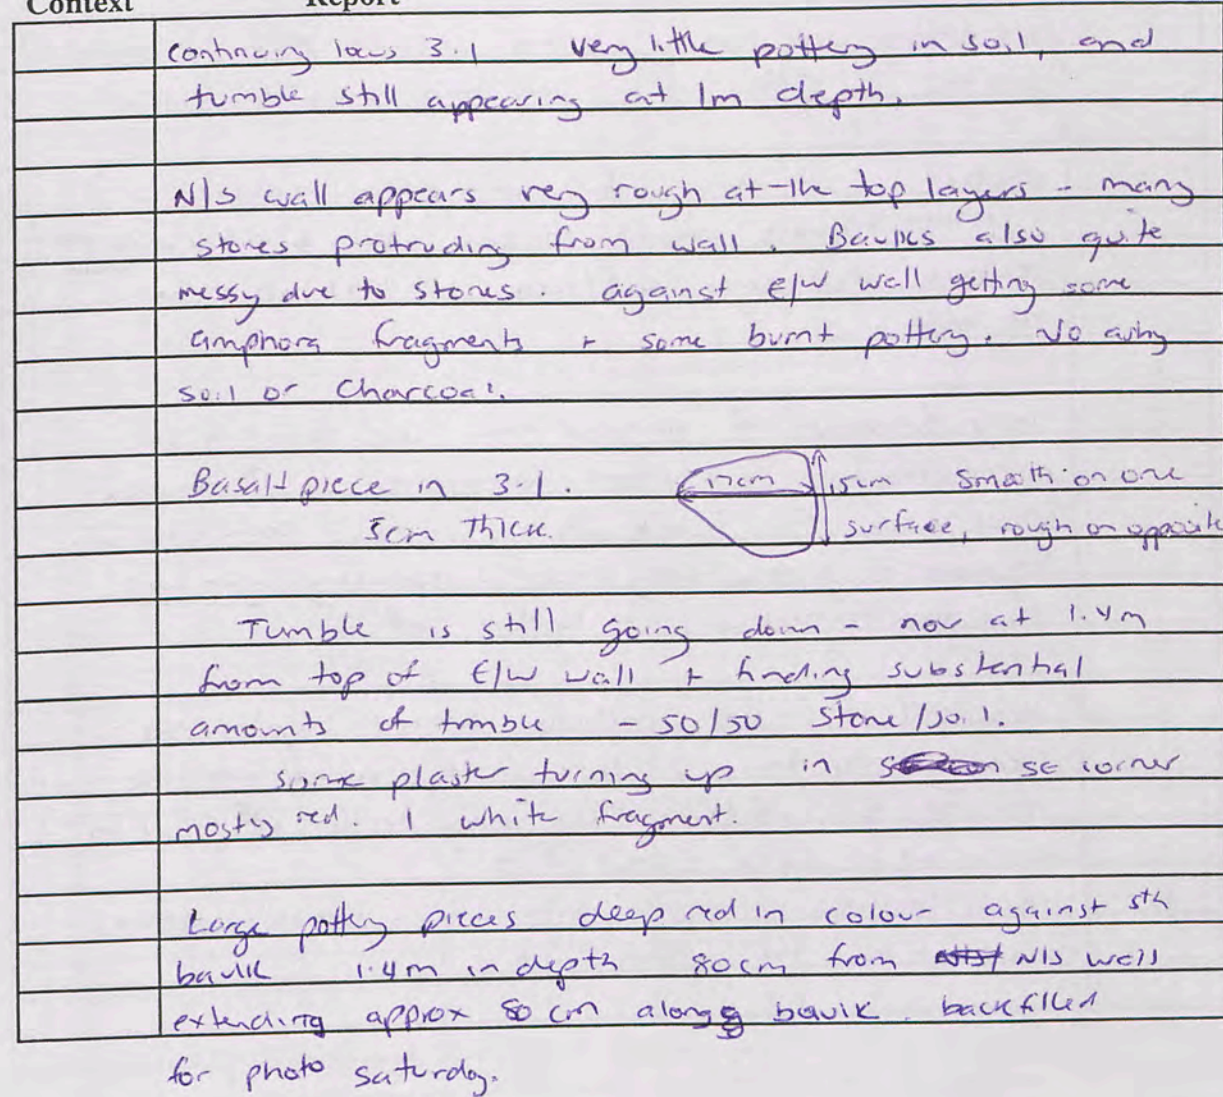 Context Report
continuing locus 3.1 very little pottery in soil, and
tumble still appearing at 1m depth.
N/S wall appears very rough at the top layers - many
stones protruding from wall. Baulks also quite
messy due to stones. against E/W wall getting some
amphora fragments + some burnt pottery. No ashy
soil or charcoal.
Basalt piece in 3.1. 17cm 15cm Smooth on one
5cm Thick. surface, rough on opposite
Tumble is still going down - now at 1.4m
from top of E/W wall + finding substantial
amounts of tumble - 50/50 stone/soil.
some plaster turning up in SE corner
mostly red. 1 white fragment.
Large pottery pieces deep red in colour against sth
baulk 1.4m in depth 80cm from N/S wall
extending approx 80 cm along baulk. backfilled
for photo saturday.